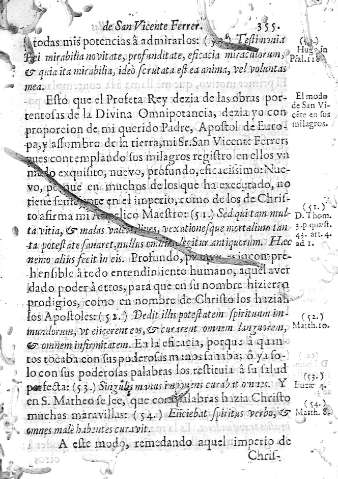 de San Vicente Ferrer. 355.
todas mis potencias à admirarlos: Testimonia
mirabilia novitate, profunditate, eficacia miraculorum,
& quia ita mirabilia, ideò scrutata est ea anima, vel voluntas
mea.
Esto que el Profeta Rey dezia de las obras por-
tentosas de la Divina Omnipotancia, dezia yo con
proporcion de mi querido Padre, Apostol de Euro-
pa, y assumbro de la tierra, mi Sr. San Vicente Ferrer
pues contemplando sus milagros registro en ellos vn
modo exquisito, nuevo, profundo, eficacissimo: Nue-
vo, porque en muchos de los que ha executado, no
tiene en el imperio, como de los de Chris-
to afirma mi Angelico Maestro: (51.) Sed qui tam mul-
ta vitia, & malas valetudines, vexationesque mortalium tan-
ta potestate sanaret, nullus legitur antiquorum. Hæc
nemo alius fecit in eis. Profundo, incompre-
hensible à todo entendimiento humano, aquel aver
dado poder à otros, para que en su nombre hizieran
prodigios, como en nombre de Christo los hazian
los Apostoles: (52.) Dedit illis potestatem spirituum im-
mundorum, vt eijcerent eos, & curarent omnem languorem,
& omnem infirmitatem. En la eficacia, porque à quan-
tos tocaba con sus poderosas manos sanaba; ò ya so-
lo con sus poderosas palabras los restituia à su salud
perfecta: (53.) Singulis manus imponens curabat omnes. Y
en S. Matheo se lee, que con palabras hazia Christo
muchas maravillas: (54.) Eijciebat spiritus verbo, &
omnes malè habentes curavit.
A este modo, remedando aquel imperio de
Chris-
Hugo in
Psal. 118
El modo
de San Vi-
cẽte en sus
milagros.
(51.)
D. Thom.
3. p. quæst.
43. art. 4.
ad 1.
(52.)
Matth. 10.
(53.)
Lucæ 4.
(54.)
Matth. 8.